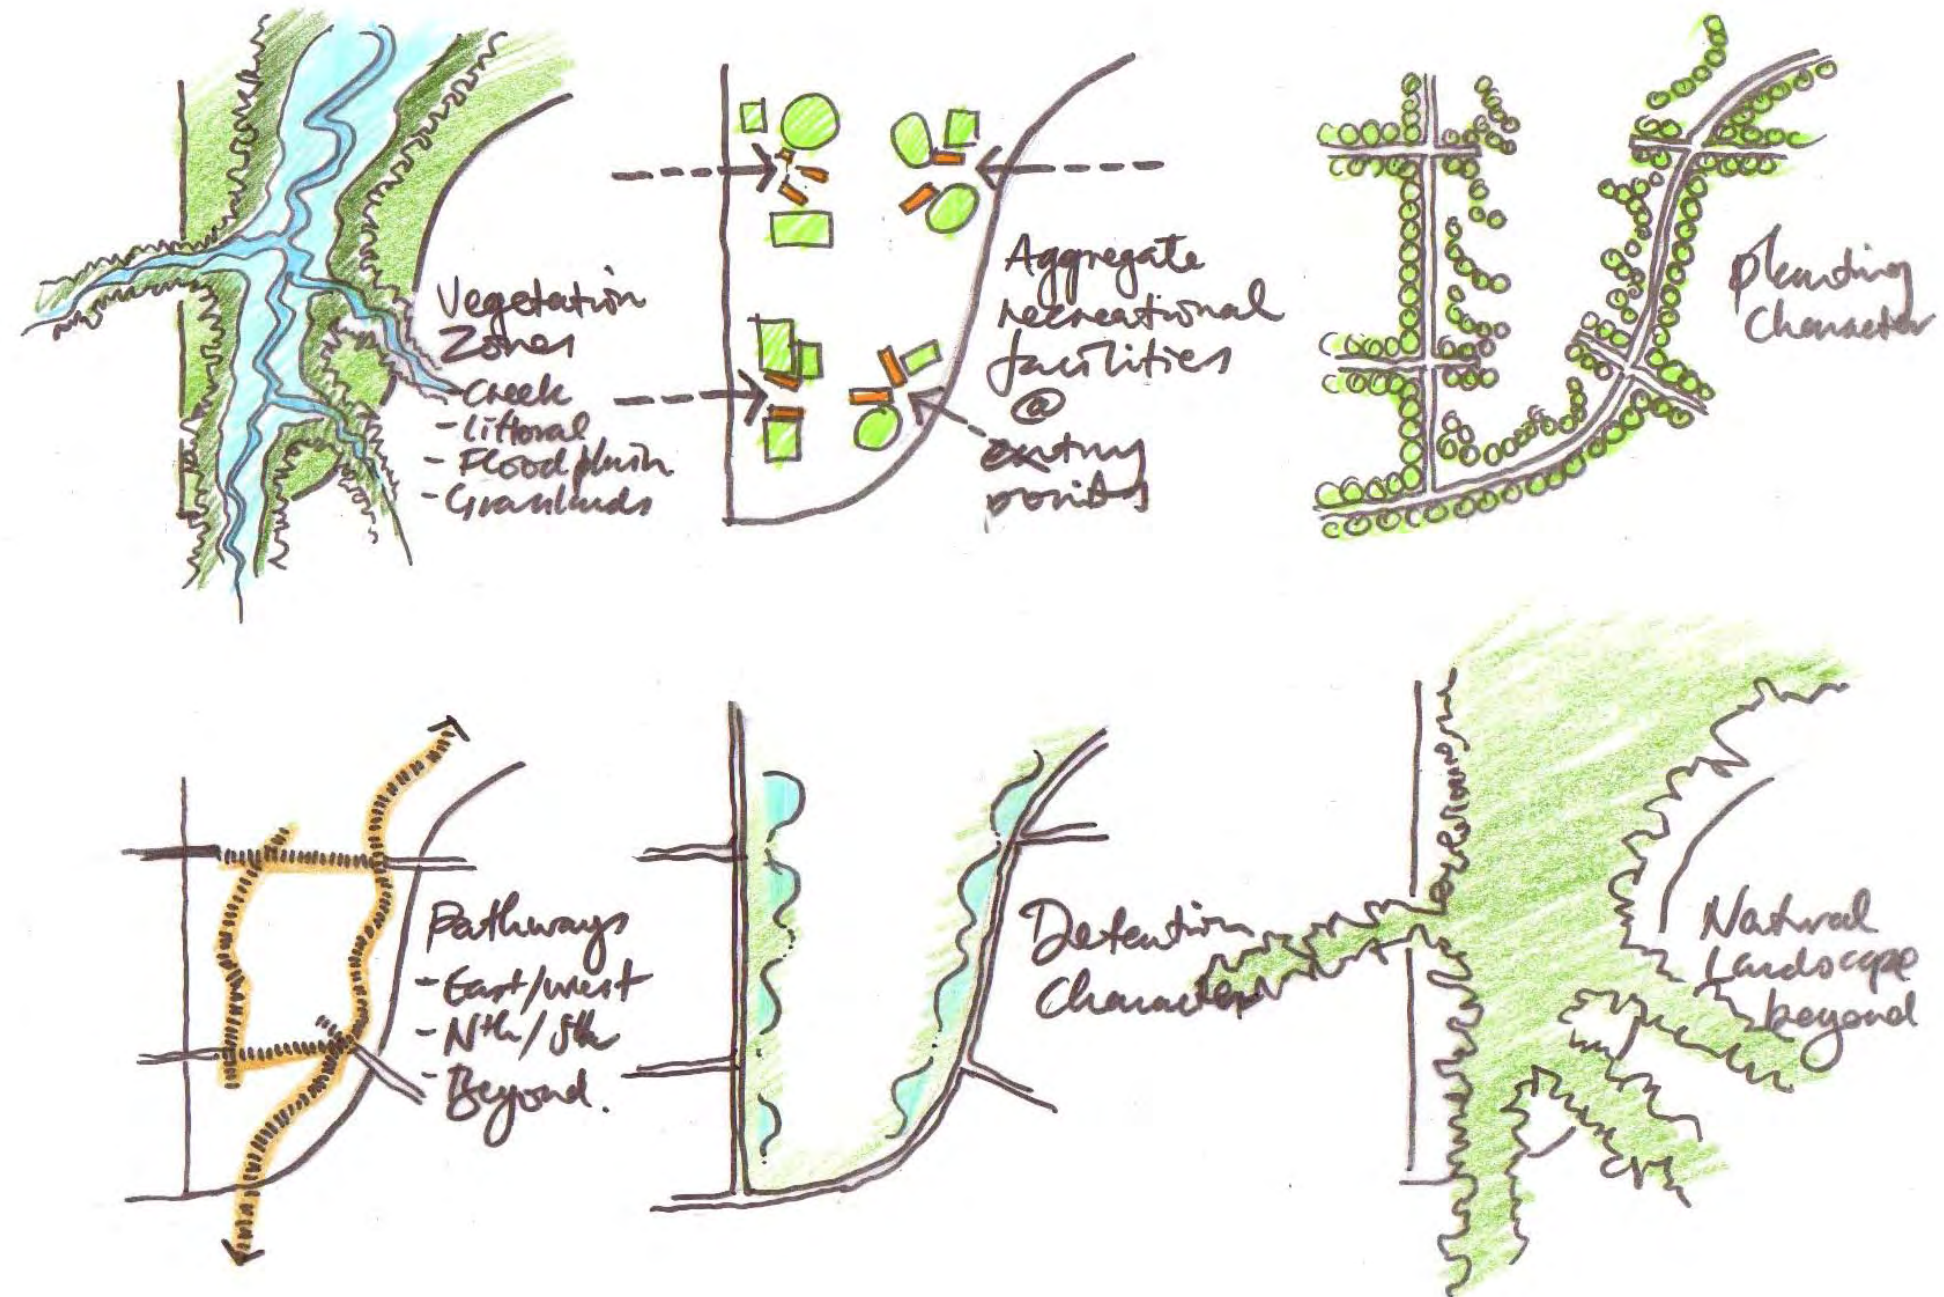 Vegetation
Zones
- Creek
- Littoral
- Floodplain
- Grasslands
Aggregate
recreational
facilities
@
entry
points
Planting
Character
Pathways
- East/west
- Nth/Sth
- Beyond.
Detention
Character
Natural
Landscape
beyond